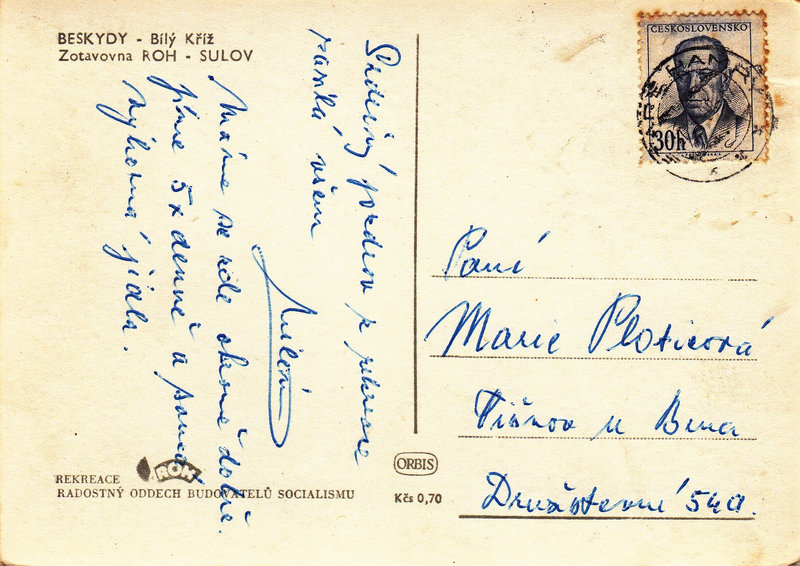 BESKYDY - Bílý Kříž
Zotavovna ROH - SULOV
Srdečný pozdrav z rekreace
všem
Máme se zde skvoně dobře.
jíme 5x denně a samá
výborná jídla.
ČESKOSLOVENSKO
30h
Paní
Marie Ploticová
u Brna
Družstevní 54a.
ROH
REKREACE
RADOSTNÝ ODDECH BUDOVATELŮ SOCIALISMU
ORBIS
Kčs 0,70